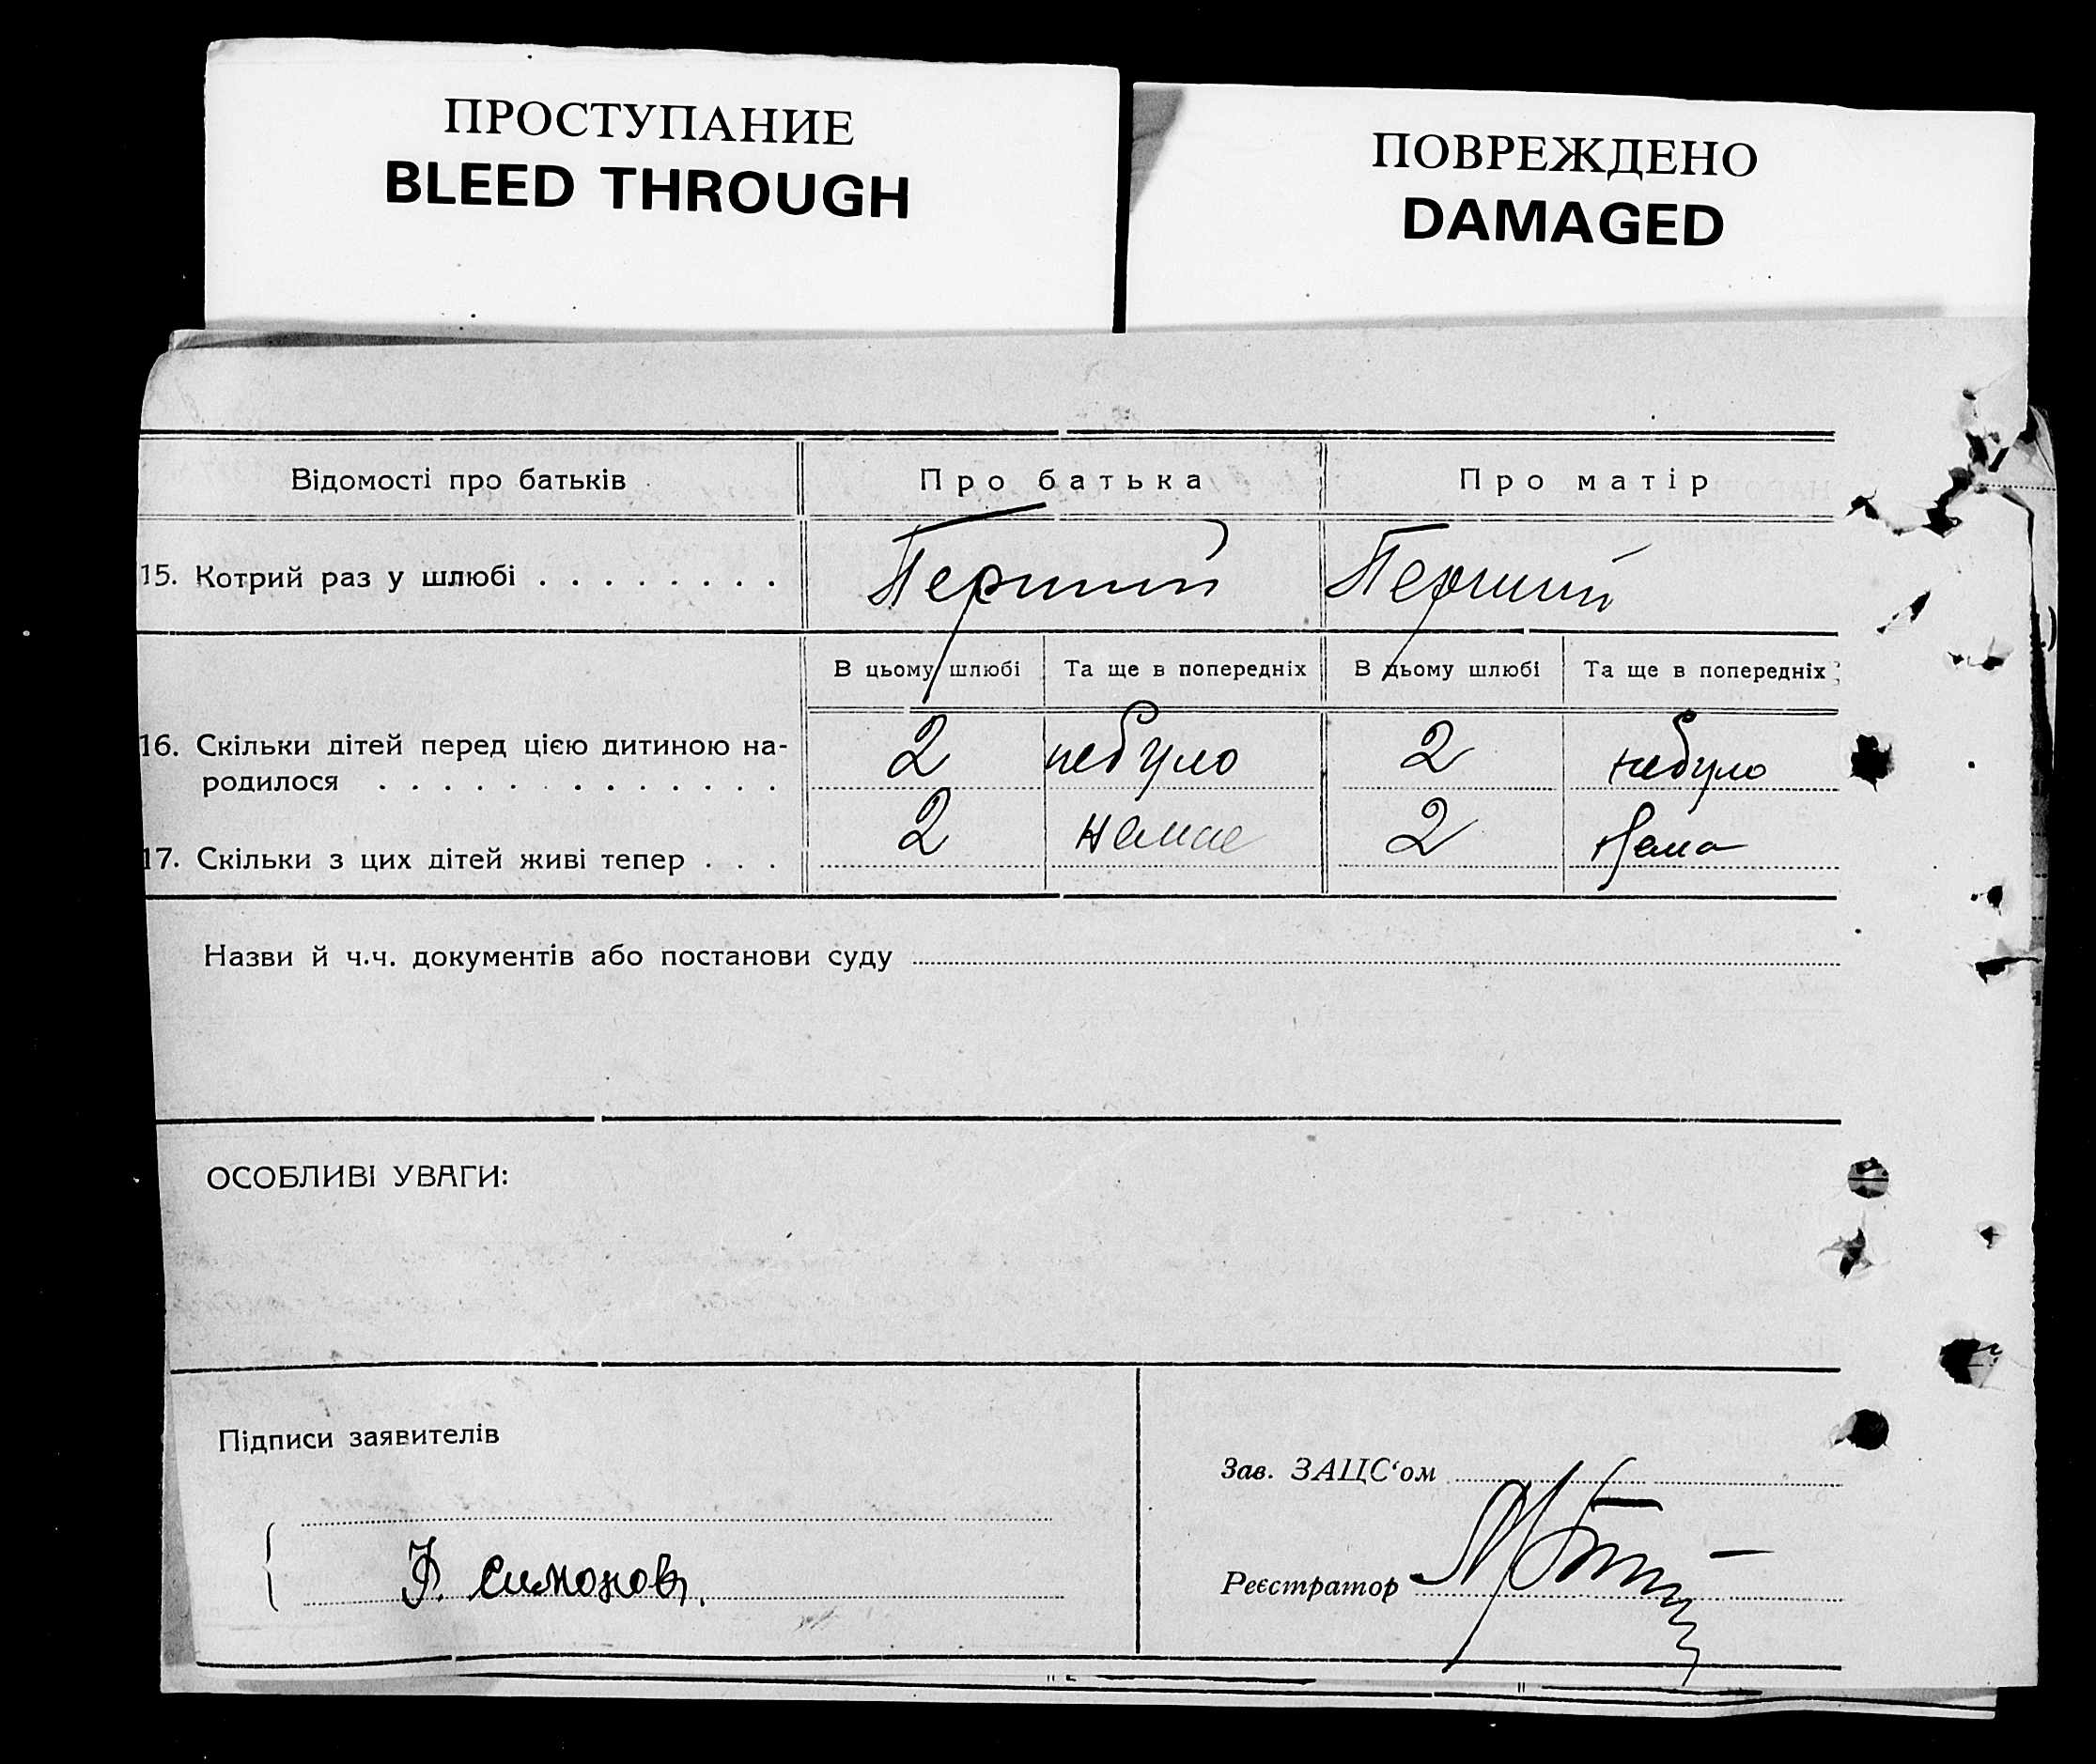 ПРОСТУПАНИЕ
BLEED THROUGH
ПОВРЕЖДЕНО
DAMAGED
Відомості про батьків Про батька Про матір
15. Котрий раз у шлюбі . . . . . . . . Перший Перший
В цьому шлюбі Та ще в попередніх В цьому шлюбі Та ще в попередніх
16. Скільки дітей перед цією дитиною на-
родилося . . . . . . . . . . . . . 2 небуло 2 небуло
17. Скільки з цих дітей живі тепер . . . 2 немає 2 Нема
Назви й ч.ч. документів або постанови суду
ОСОБЛИВІ УВАГИ:
Підписи заявителів
Зав. ЗАЦС‘ом
Симонов.
Реєстратор